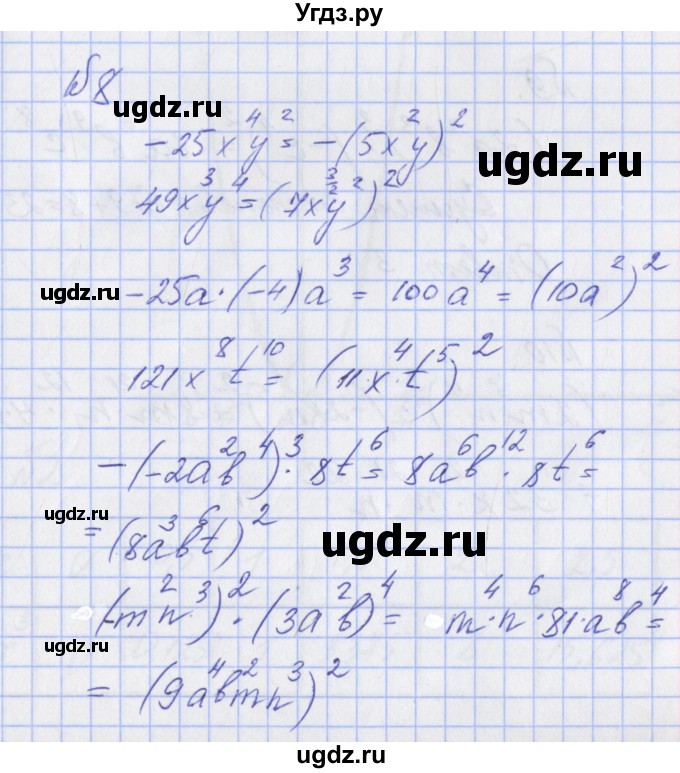 Угдз.ру
№8
ugdz.ru
-25x⁴y² = -(5x²y)²
ugdz.ru
49x³y⁴ = (7x³y²)²
ugdz.ru
-25a·(-4)a³ = 100a⁴ = (10a²)²
121x⁸t¹⁰ = (11x⁴·t⁵)²
-(-2a²b⁴)³·8t⁶ = 8a⁶b¹²·8t⁶ =
ugdz.ru
= (8a³b⁶t)²
ugdz.ru
(-m²n³)²·(3a²b)⁴ = m⁴·n⁶·81·a⁸b⁴ =
ugdz.ru
= (9a⁴b²mn³)²
ugdz.ru